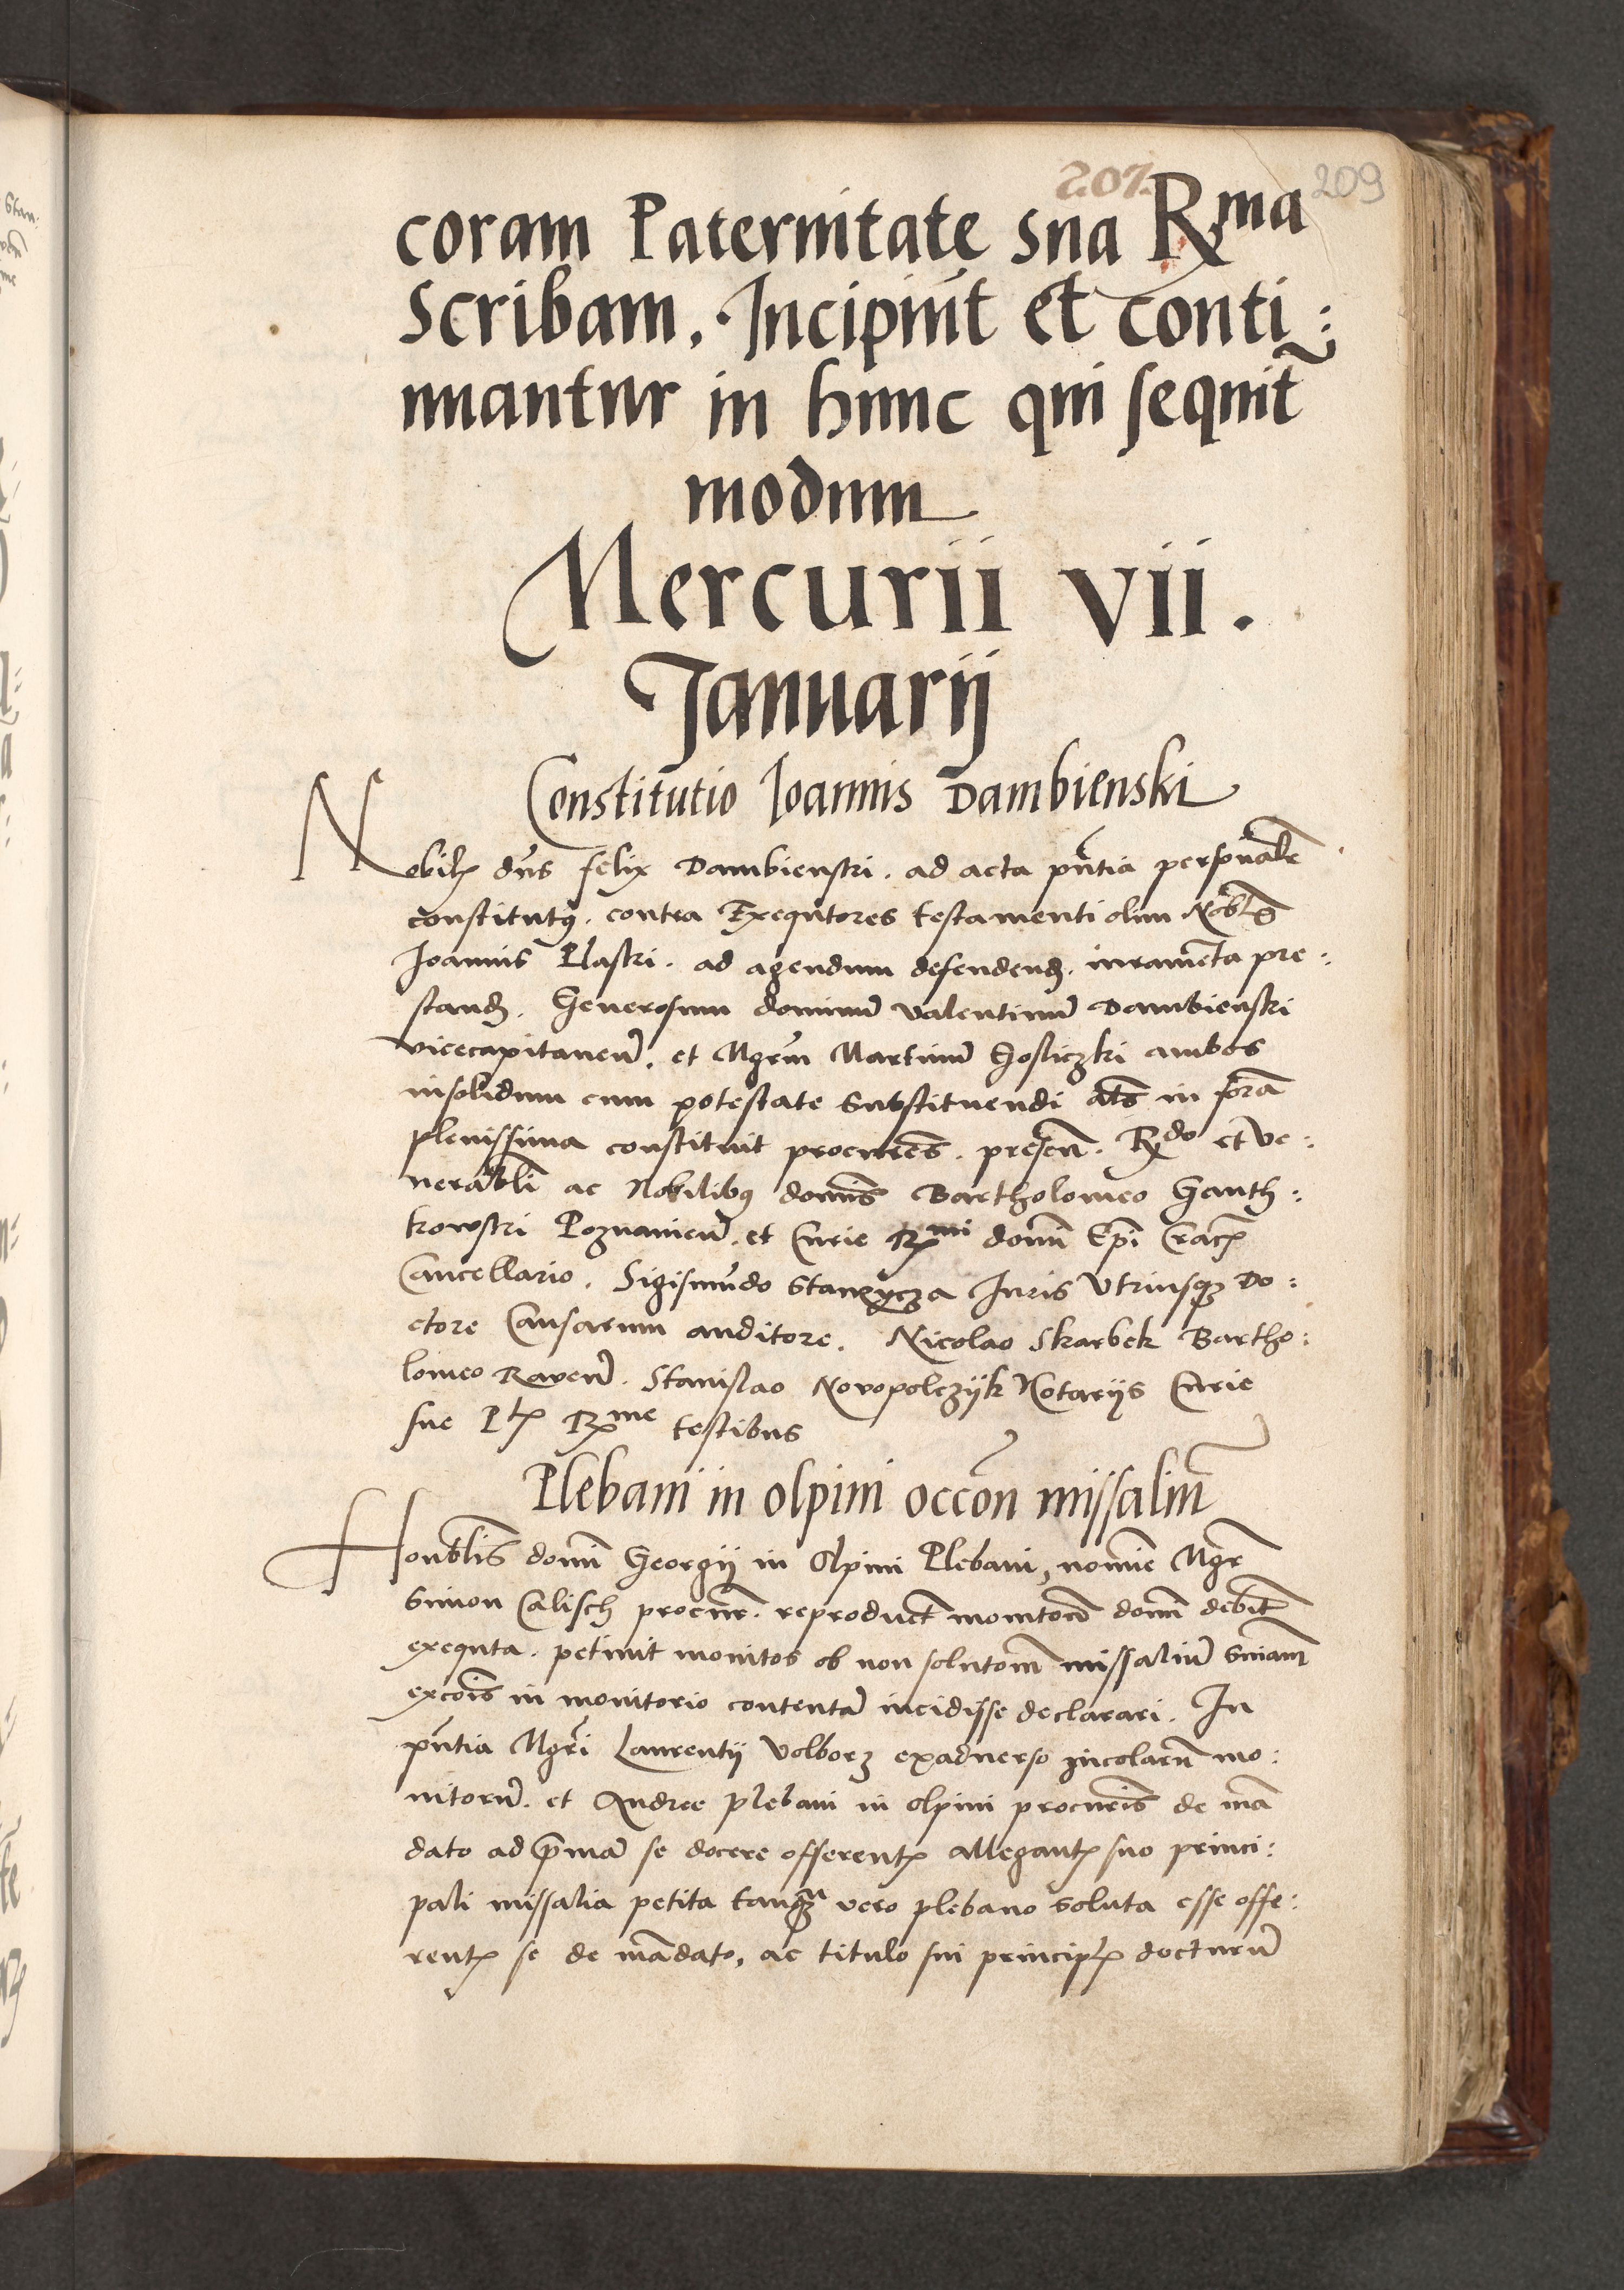 207. 209
coram Paternitate sua Rma
Scribam. Incipiūt et conti:
nuantur in hunc qui sequit̃
modum
Mercurii vii.
Januarij
Constitutio Ioannis Dambienski
Nobilꝭ dñs felix Dambienski. ad acta pñtia personalr̃
constitutꝰ. contra Exequtores testamenti olim Nobłs
Joannis Plaski. ad agendum defendendꝫ. iuramẽta pre:
standꝫ. Generosum dominũ Valentinũ Dambienski
vicecapitaneũ. et Mgrũm Martinũ Gosliczki ambos
insolidum cum potestate substituendi ałs in forã
plenissima constituit procures. presen̄. Rdo et ve:
nerabłi ac Nobilibꝰ domīs Bartholomeo Ganth:
kowski Poznanien̄. et Curie Rmi domī Epī Cracꝭ
Cancellario. Sigismũdo Stanzycza Iuris Utriusqꝫ Do:
ctore Causarum auditore. Nicolao Skarbek Bartho:
lomeo Raven̄. Stanislao Novopolczyk Notarijs Curie
sue Ptꝭ Rme testibus
Plebani in olpini occõn missaliũ
Honoblis domī Georgij in Olpini Plebani, nomīe Mgr̃
Simon Calisch procur̃. reproduct̃ monitorũ domī debit̃
exequta. petiuit monitos ob non solutoem̃ missaliũ sniam̃
excoīs in monitorio contentã incidisse declarari. In
pñtia Mgrĩ Laurentij Volborz exaduerso incolarũ mo:
nitorũ. et Andree plebani in olpini procuris de mã
dato ad p̃mã se docere offerentꝭ allegantꝭ suo princi:
pali missalia petita tanqꝫ vero plebano soluta esse offe:
rentꝭ se de mãdato, ac titulo sui principlꝭ docturũ